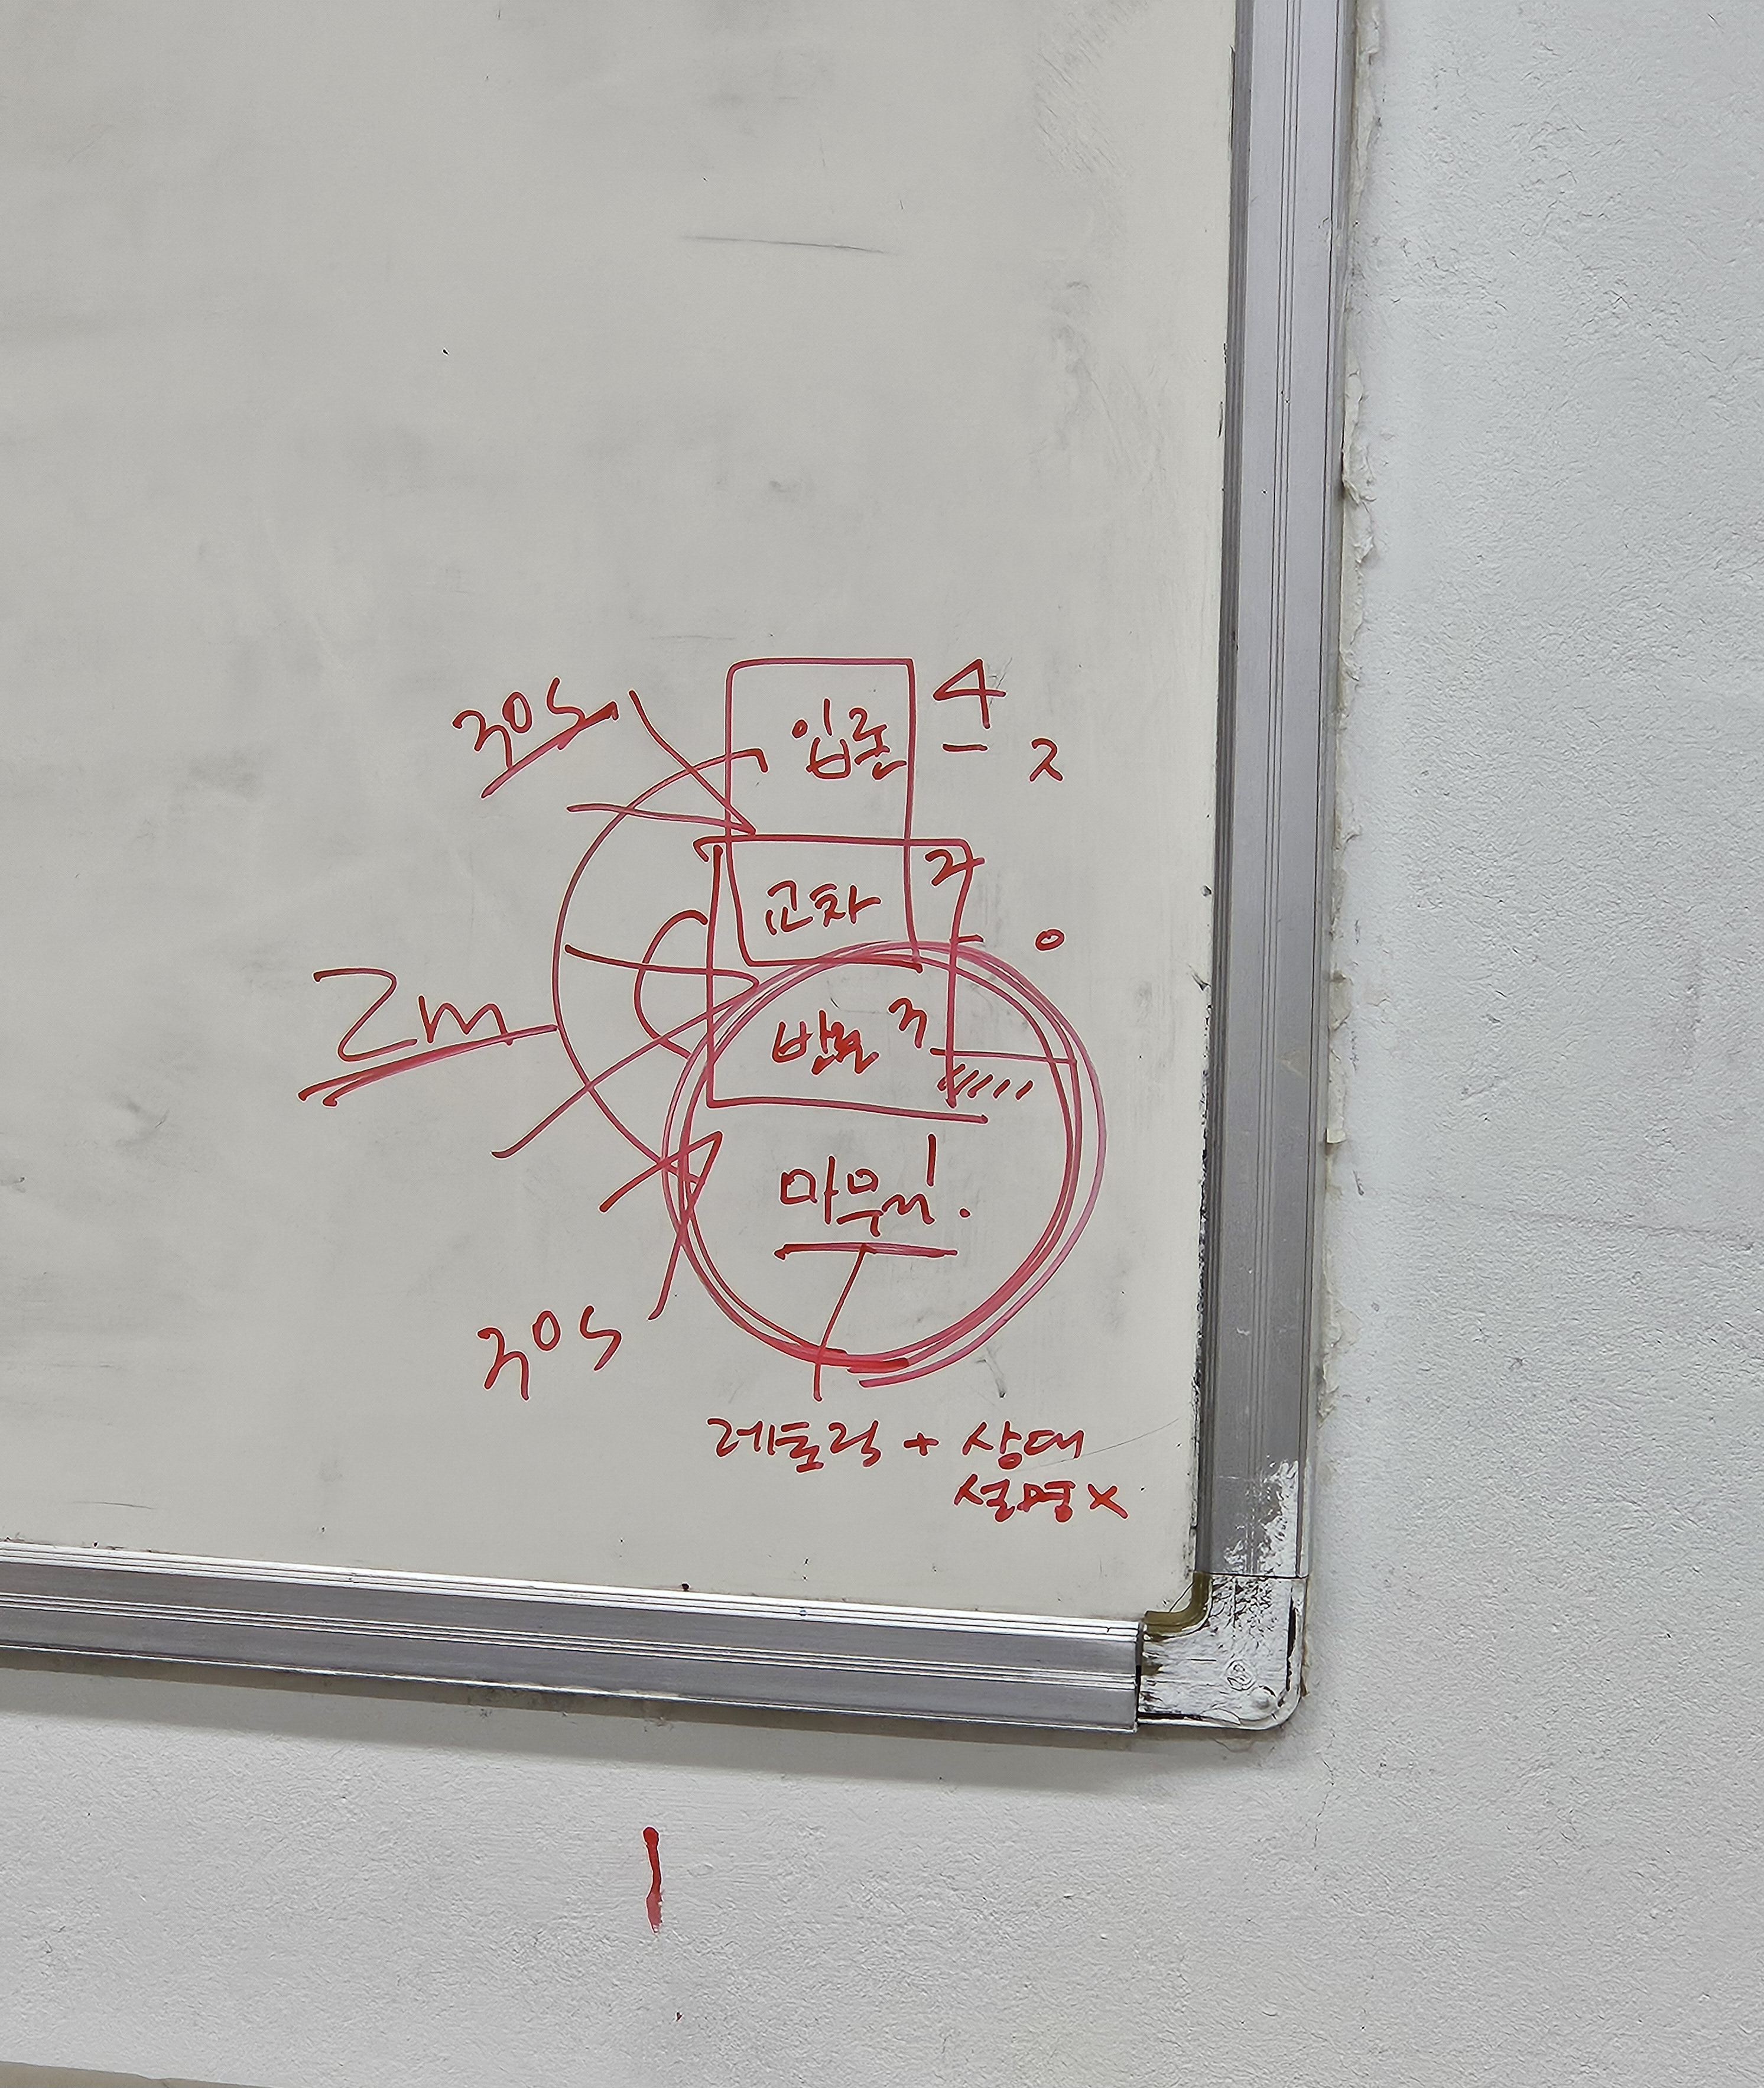 30s
입론 4
- 2
교차 2
- 0
2m
반론 3
마무리!
30s
레토릭 + 상대
설명 x